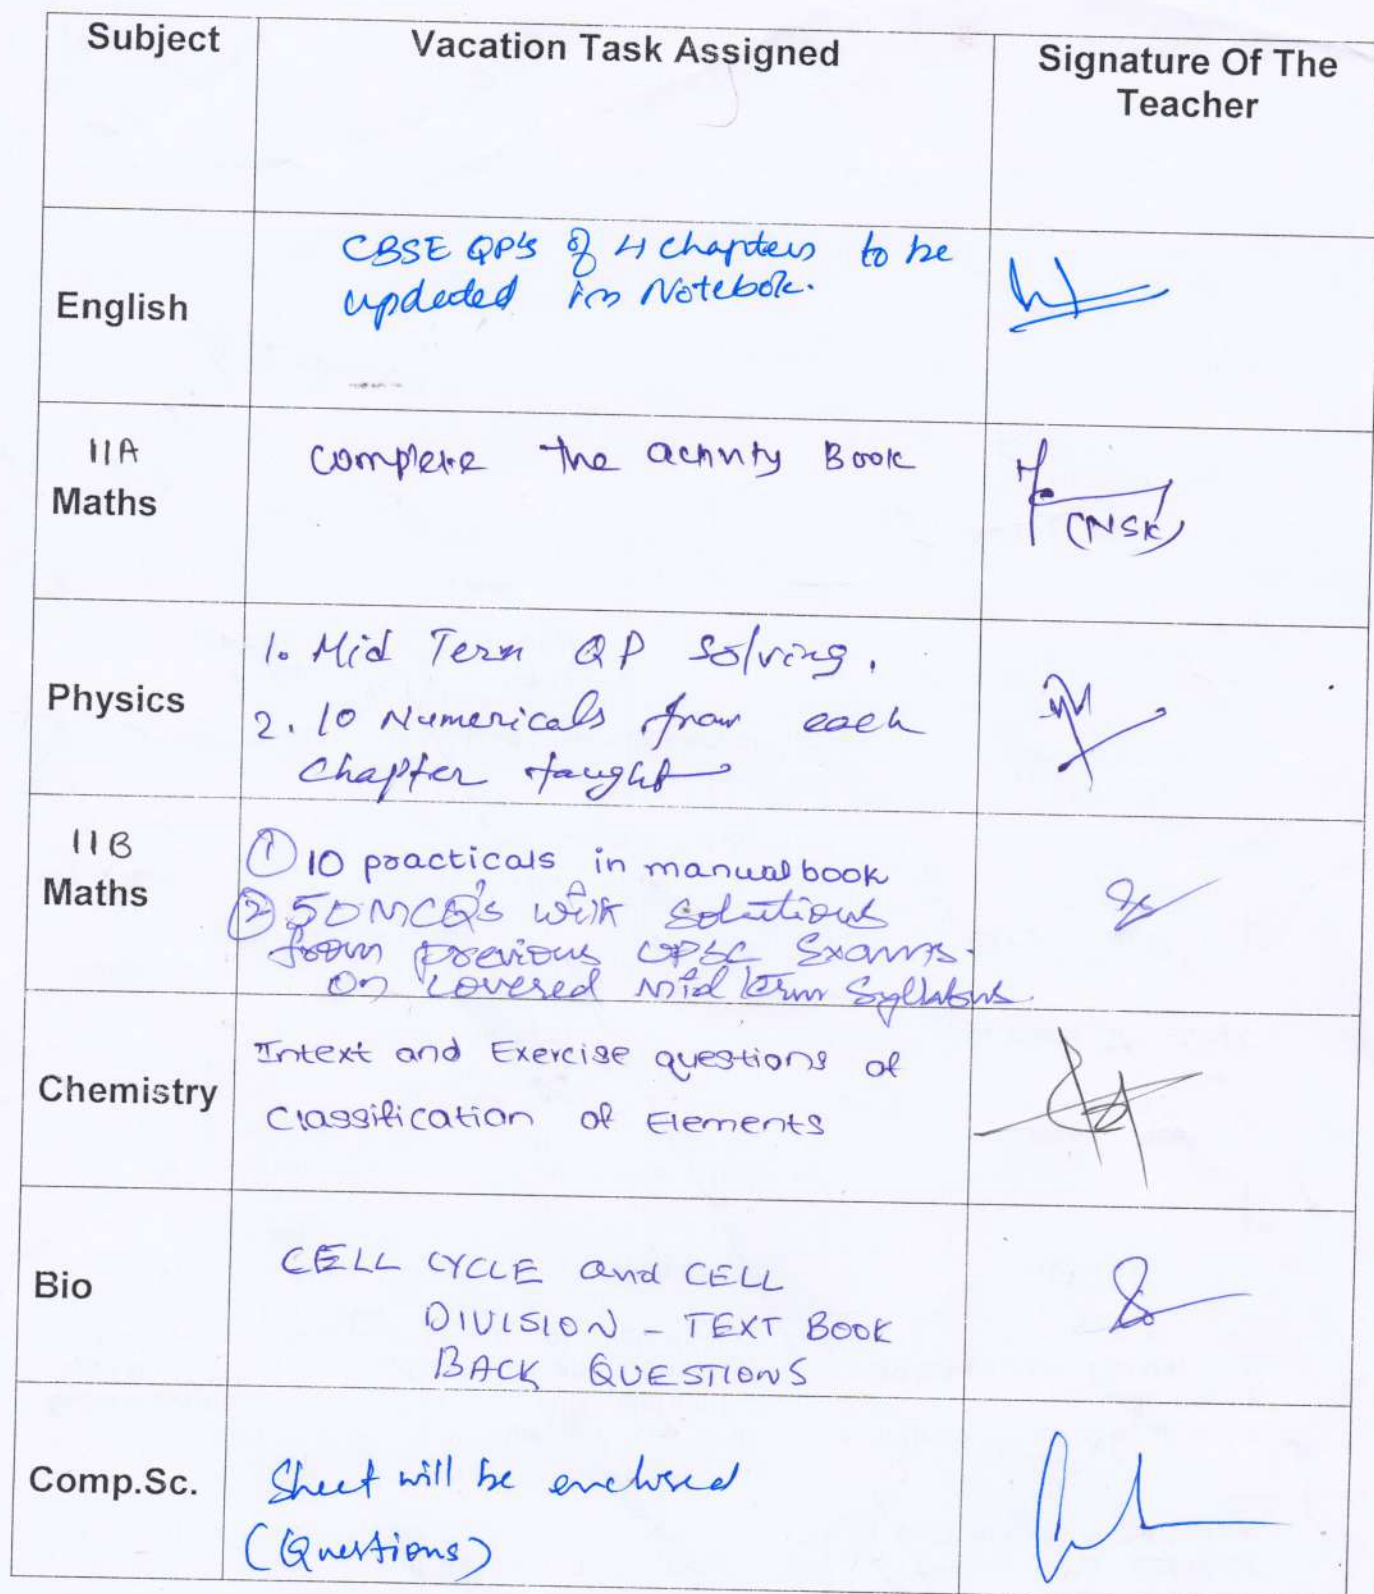 Subject
Vacation Task Assigned
Signature Of The
Teacher
English
CBSE QP's of 4 chapters to be
updated in Notebook.
11A
Maths
complete the activity Book
(NSK)
Physics
1. Mid Term QP solving.
2. 10 Numericals from each
chapter taught
11B
Maths
① 10 practicals in manual book
② 50 MCQ's with solutions
from previous UPSC Exams.
on covered mid term Syllabus
Chemistry
Intext and Exercise questions of
Classification of Elements
Bio
CELL CYCLE and CELL
DIVISION - TEXT BOOK
BACK QUESTIONS
Comp.Sc.
Sheet will be enclosed
(Questions)